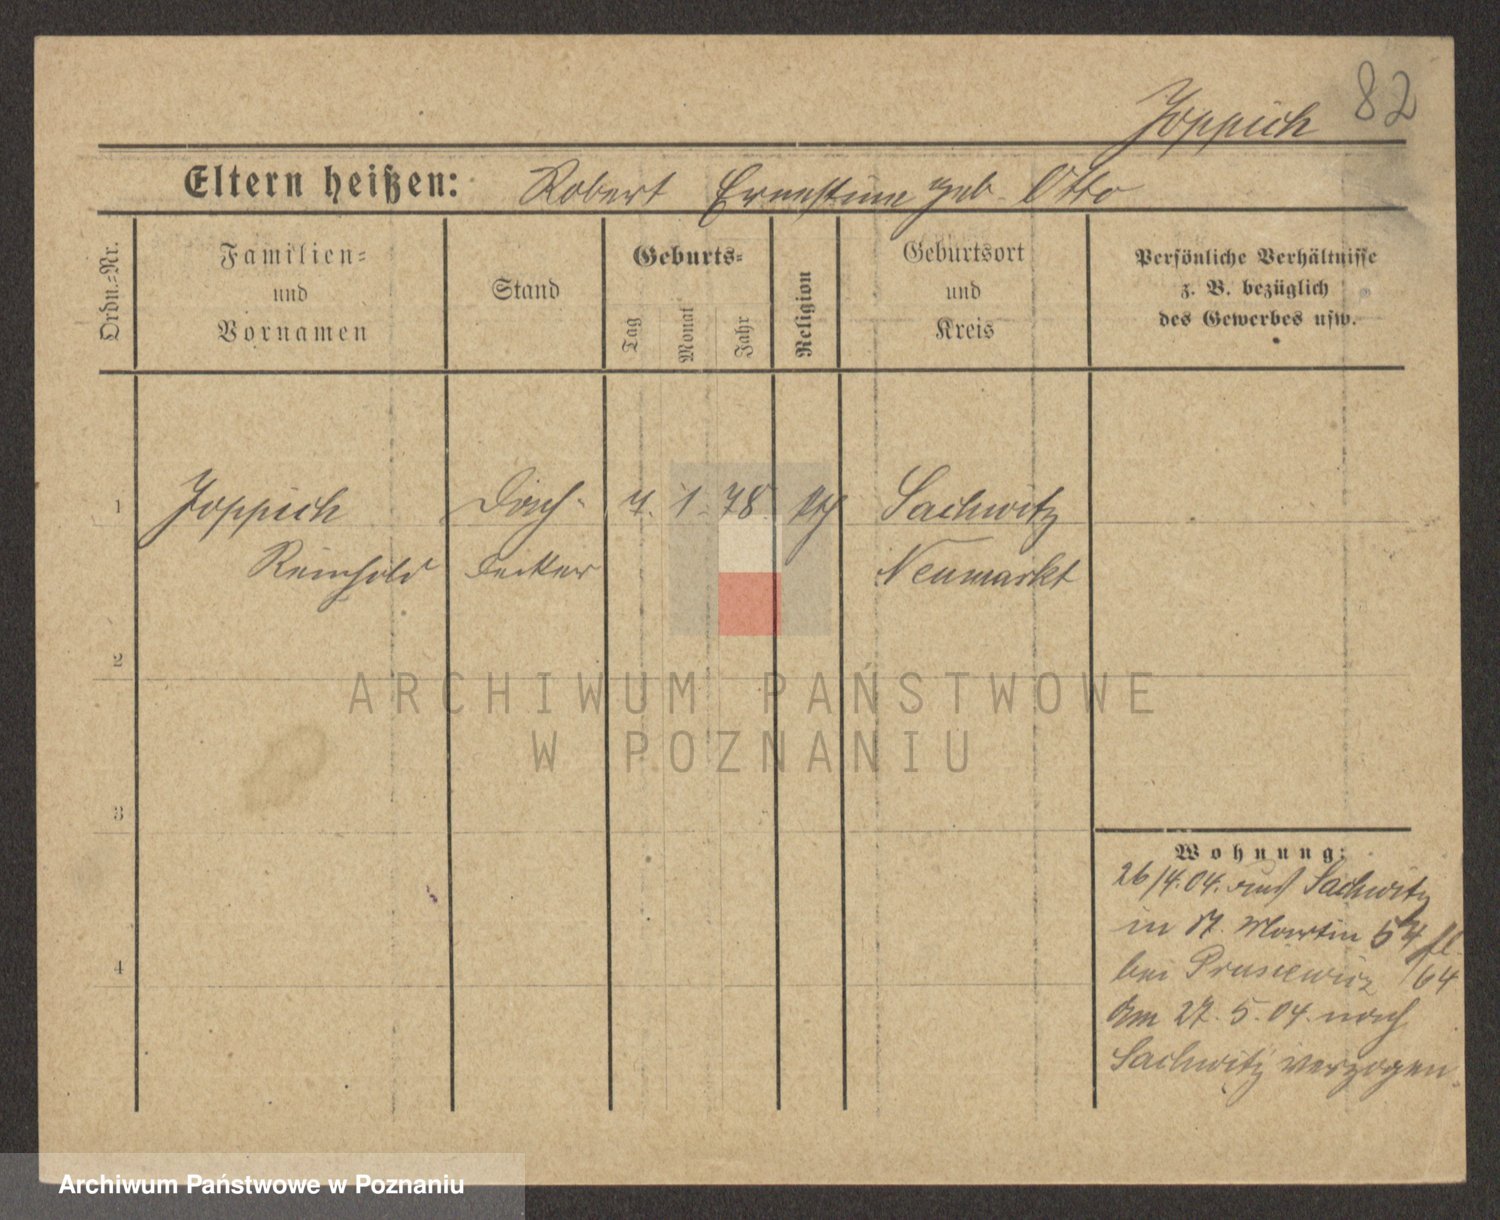 82
Joppich
Eltern heißen: Robert Ernestine geb. Otto
Ordn.=Nr.
Familien=
und
Vornamen
Stand
Geburts=
Tag
Monat
Jahr
Religion
Geburtsort
und
Kreis
Persönliche Verhältnisse
z. B. bezüglich
des Gewerbes usw.
1
Joppich Dach- 4. 1. 78. Sachwitz
Reinhold decker Neumarkt
2
3
4
Wohnung:
26/4.04. aus Sachwitz
in St. Martin 64
bei Prusiewicz 64
Am 27. 5. 04. nach
Sachwitz verzogen.
ARCHIWUM PAŃSTWOWE
W POZNANIU
Archiwum Państwowe w Poznaniu